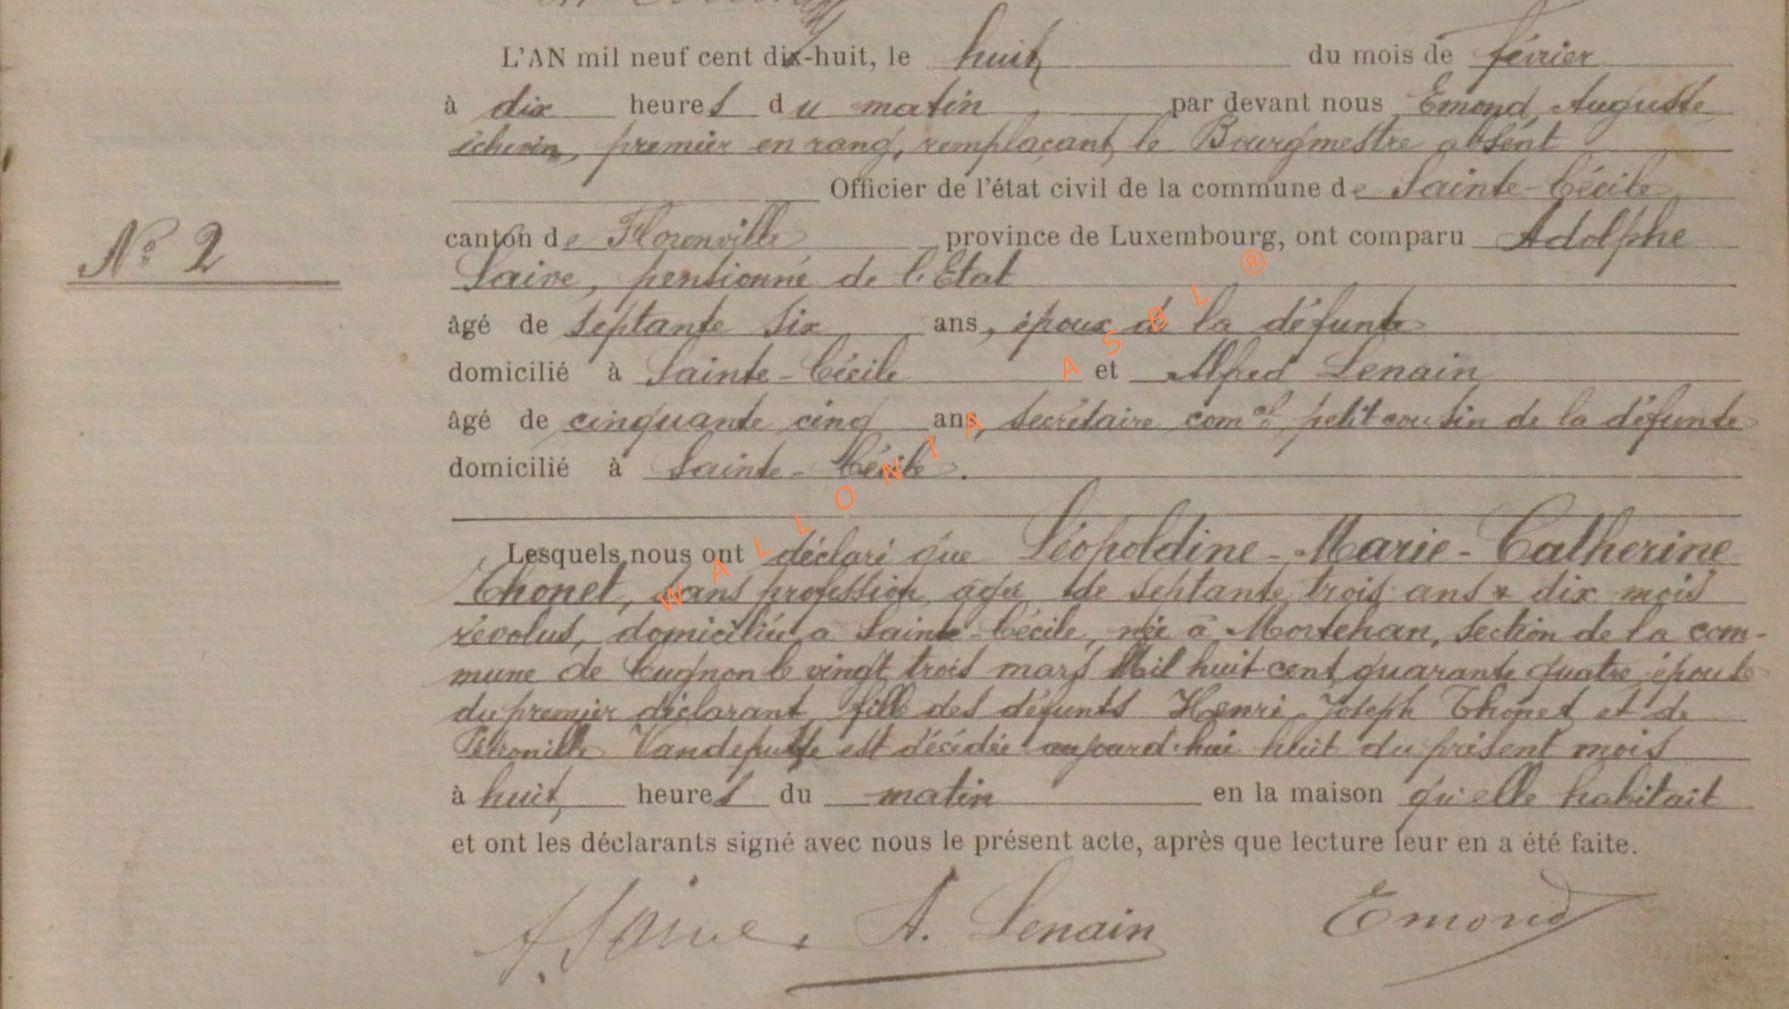 L'AN mil neuf cent dix-huit, le huit du mois de février
à dix heures du matin par devant nous Emond, Auguste
échevin, premier en rang, remplaçant le Bourgmestre absent
Officier de l'état civil de la commune de Sainte-Cécile
N° 2
canton de Florenville province de Luxembourg, ont comparu Adolphe
Saive, pensionné de l'Etat
âgé de septante six ans, époux de la défunte
domicilié à Sainte-Cécile et Alfred Lenain
âgé de cinquante cinq ans, secrétaire comal, petit cousin de la défunte
domicilié à Sainte-Cécile.
Lesquels nous ont déclaré que Léopoldine-Marie-Catherine
Thonet, sans profession, agée de septante trois ans & dix mois
révolus, domiciliée à Sainte-Cécile, née à Mortehan, section de la com-
mune de Cugnon le vingt trois mars Mil huit cent quarante quatre, épouse
du premier déclarant, fille des défunts Henri-Joseph Thonet et de
Pétronille Vandeputte est décédée aujourd'hui huit du présent mois
à huit heures du matin en la maison qu'elle habitait
et ont les déclarants signé avec nous le présent acte, après que lecture leur en a été faite.
A. Saive. A. Lenain Emond
WALLONIA ASBL ®